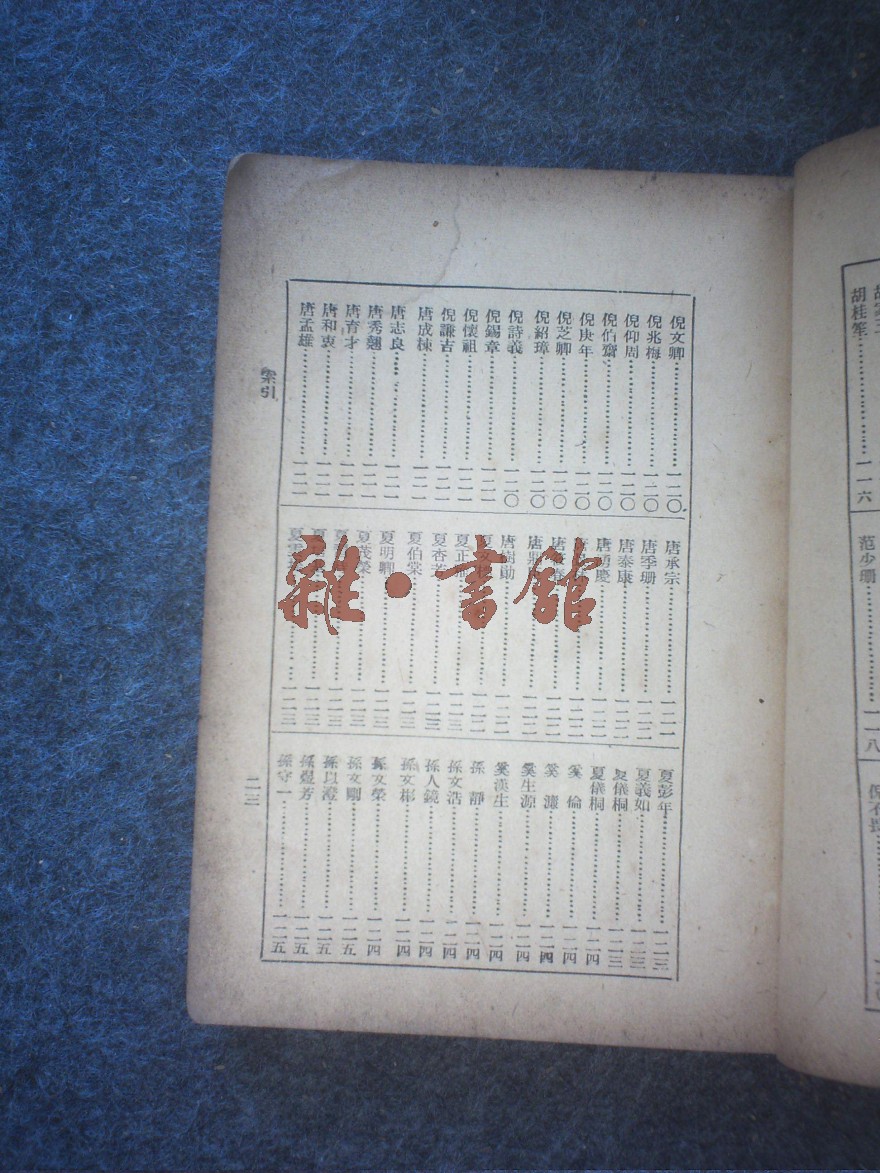 胡桂笙……一一六
范少珊……一一八
倪文卿……一二〇
倪兆梅……一二〇
倪仰周……一二〇
倪伯齋……一二〇
倪庚年……一二〇
倪芝卿……一二〇
倪紹璋……一二〇
倪詩義……一二〇
倪錫章……一二一
倪懷祖……一二一
倪謙吉……一二一
唐成棟……一二一
唐志良……一二一
唐秀翹……一二一
唐育才……一二一
唐和衷……一二一
唐孟雄……一二一
唐承宗……一二二
唐季珊……一二二
唐泰康……一二二
唐樹勛……一二二
夏杏芳……一二三
夏伯棠……一二三
夏明卿……一二三
夏茂榮……一二三
夏彭年……一二三
夏義如……一二三
夏儀桐……一二三
夏儀桐……一二四
奚 倫……一二四
奚 濂……一二四
奚生源……一二四
奚漢生……一二四
孫 靜……一二四
孫文浩……一二四
孫人鏡……一二四
孫文彬……一二四
孫文榮……一二四
孫文剛……一二五
孫以澄……一二五
孫守一……一二五
索引
二三
雜·書館